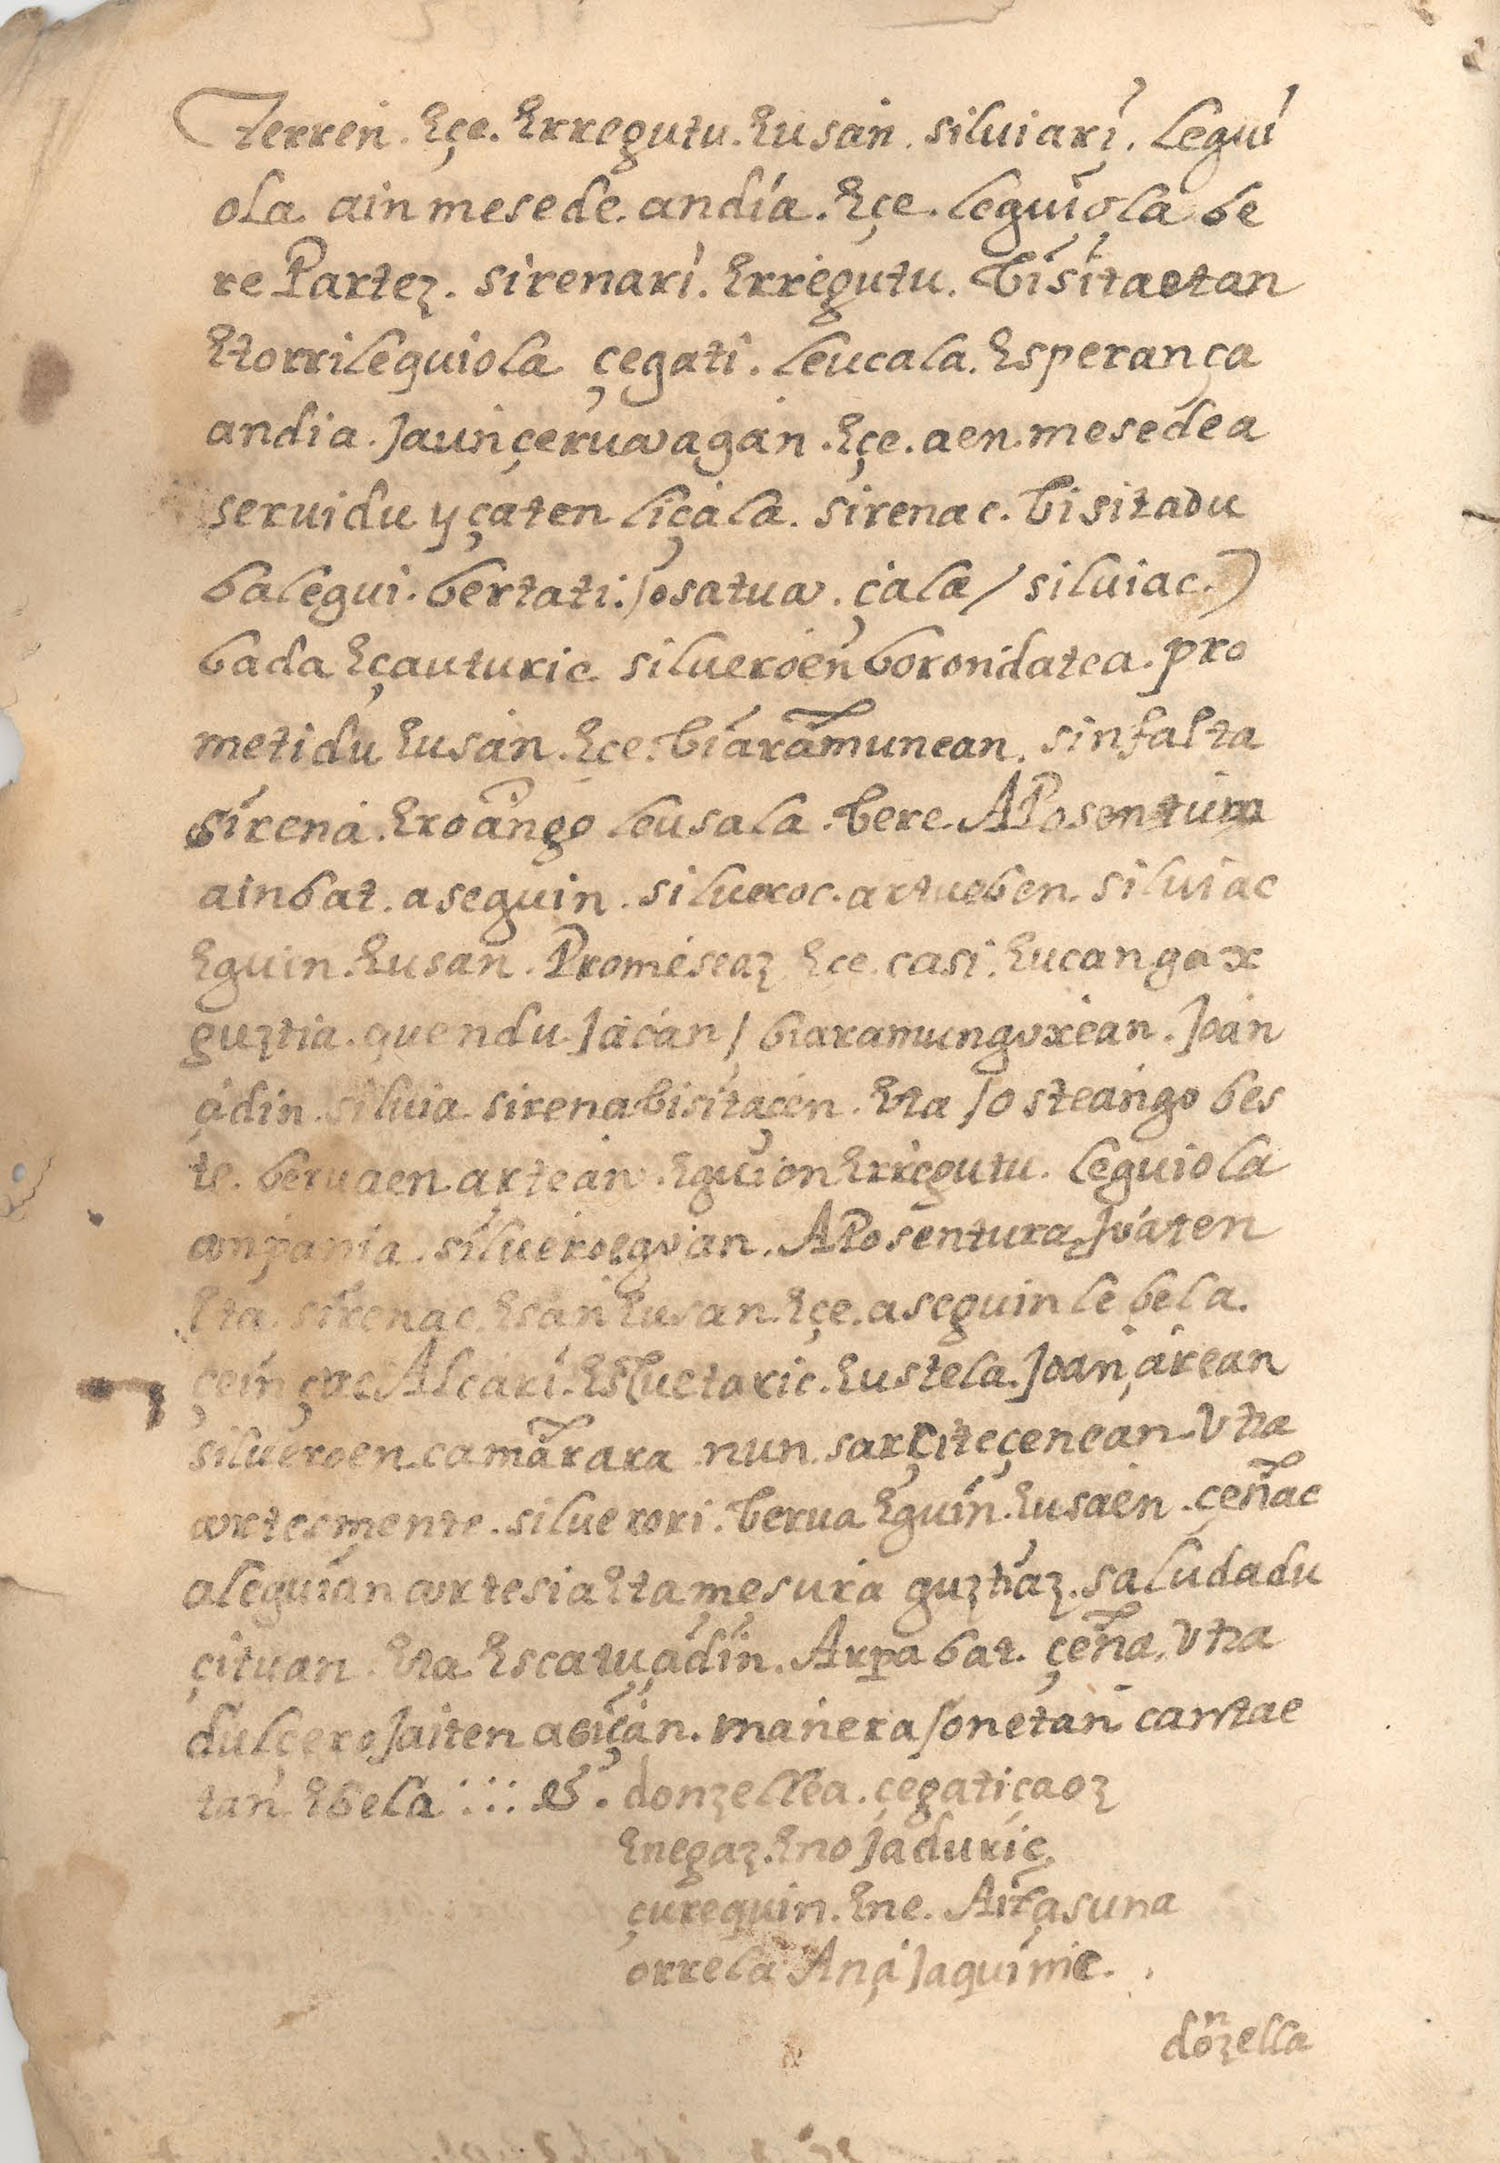 terren. Eçe. Erregutu. Eusan. silviari. Legui
ola ain mesede. andia. Eçe. leguiola be
re Partez. sirenari. Erregutu. bisitaetan
Etorrileguiola çegati. leucala. Esperança
andia. Jaunçeruaagan. Eçe. aen mesedea
seruidu yçaten liçala. sirenac. bisitadu
balegui. bertati. / osatua. çala / siluiac.)
bada Eçauturic silueroen borondatea. pro
metidu Eusan. Eçe. biaramunean. sinfalta
sirena. Eroango leusala. bere. APosentura
ainbat. aseguin. silueroc. artueben. siluiac
Eguin Eusan. Promeseaz Eçe casi. Eucan gax
guztia. quendu. Jacan / biaramungoxean. Joan
çidin. siluia sirena bisitaçen. Eta / osteango bes
te. beruaen artean. Eguion Erregutu. leguiola
conpania. silueroegoan. APosentura, Joaten
Eta. sirenac. Esan Eusan. Eçe. aseguin lebela.
çeinçuc Alcari. Escuetaric. Eustela. Joan, çirean
silueroen camarara nun sarçiteçenean. Vtra
cortesmente. siluerori. berua Eguin. Eusaen. çeñac
aleguian cortesia Eta mesura guztiaz. saludadu
çituan. Eta. Escatu çidin. Arpa bat. çeña. Vtra
dulçero Jaiten abiçan. manera / onetan cantae
tan Ebela ∴: &. donzellea. çegatiçaoz
Enegaz. EnoJaduric,
çurequin. Ene. Aitaçsuna
orrela Ana Jaquinic. .
donzella